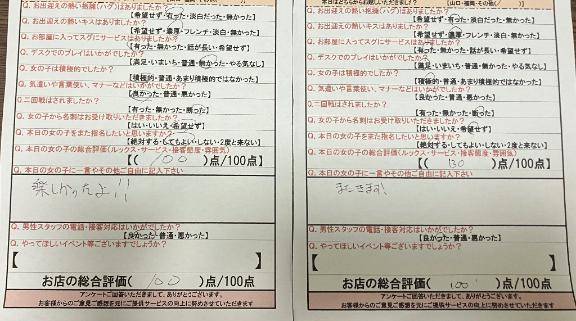 Q. お出迎えの熱い抱擁(ハグ)はありましたか？
【希望せず・有った・淡白だった・無かった】
Q. お出迎えの熱いキスはありましたか？
【希望せず・濃厚・フレンチ・淡白・無かった】
Q. お部屋に入ってスグにサービスはありましたか？
【有った・無かった・話が長い・希望せず】
Q. デスクでのプレイはいかがでしたか？
【満足・いまいち・普通・無かった・やる気なし】
Q. 女の子は積極的でしたか？
【積極的・普通・あまり積極的ではなかった】
Q. 気遣いや言葉使い、マナーなどはいかがでしたか？
【良かった・普通・悪かった】
Q. 二回戦はされましたか？
【有った・無かった・断った】
Q. 女の子から名刺はお受け取りいただきましたか？
【はい・いいえ・希望せず】
Q. 本日の女の子をまた指名したいと思いますか？
【絶対する・してもよい・しない・2度と来ない】
Q. 本日の女の子の総合評価(ルックス・サービス・接客態度・雰囲気)
【( 100 )点/100点】
Q. 本日の女の子に一言やその他ご自由に記入下さい
楽しかったよ!!
Q. 男性スタッフの電話・接客対応はいかがでしたか？
【良かった・普通・悪かった】
Q. やってほしいイベント等ございますでしょうか？
【 】
お店の総合評価( 100 )点/100点
アンケートご回答いただきまして、ありがとうございます。
お客様からのご意見ご感想を元にご提供サービスの向上に努めさせていただきます
Q. お出迎えの熱い抱擁(ハグ)はありましたか？
【希望せず・有った・淡白だった・無かった】
Q. お出迎えの熱いキスはありましたか？
【希望せず・濃厚・フレンチ・淡白・無かった】
Q. お部屋に入ってスグにサービスはありましたか？
【有った・無かった・話が長い・希望せず】
Q. デスクでのプレイはいかがでしたか？
【満足・いまいち・普通・無かった・やる気なし】
Q. 女の子は積極的でしたか？
【積極的・普通・あまり積極的ではなかった】
Q. 気遣いや言葉使い、マナーなどはいかがでしたか？
【良かった・普通・悪かった】
Q. 二回戦はされましたか？
【有った・無かった・断った】
Q. 女の子から名刺はお受け取りいただきましたか？
【はい・いいえ・希望せず】
Q. 本日の女の子をまた指名したいと思いますか？
【絶対する・してもよい・しない・2度と来ない】
Q. 本日の女の子の総合評価(ルックス・サービス・接客態度・雰囲気)
【( 130 )点/100点】
Q. 本日の女の子に一言やその他ご自由に記入下さい
またきます!
Q. 男性スタッフの電話・接客対応はいかがでしたか？
【良かった・普通・悪かった】
Q. やってほしいイベント等ございますでしょうか？
【 】
お店の総合評価( 100 )点/100点
アンケートご回答いただきまして、ありがとうございます。
お客様からのご意見ご感想を元にご提供サービスの向上に努めさせていただきます